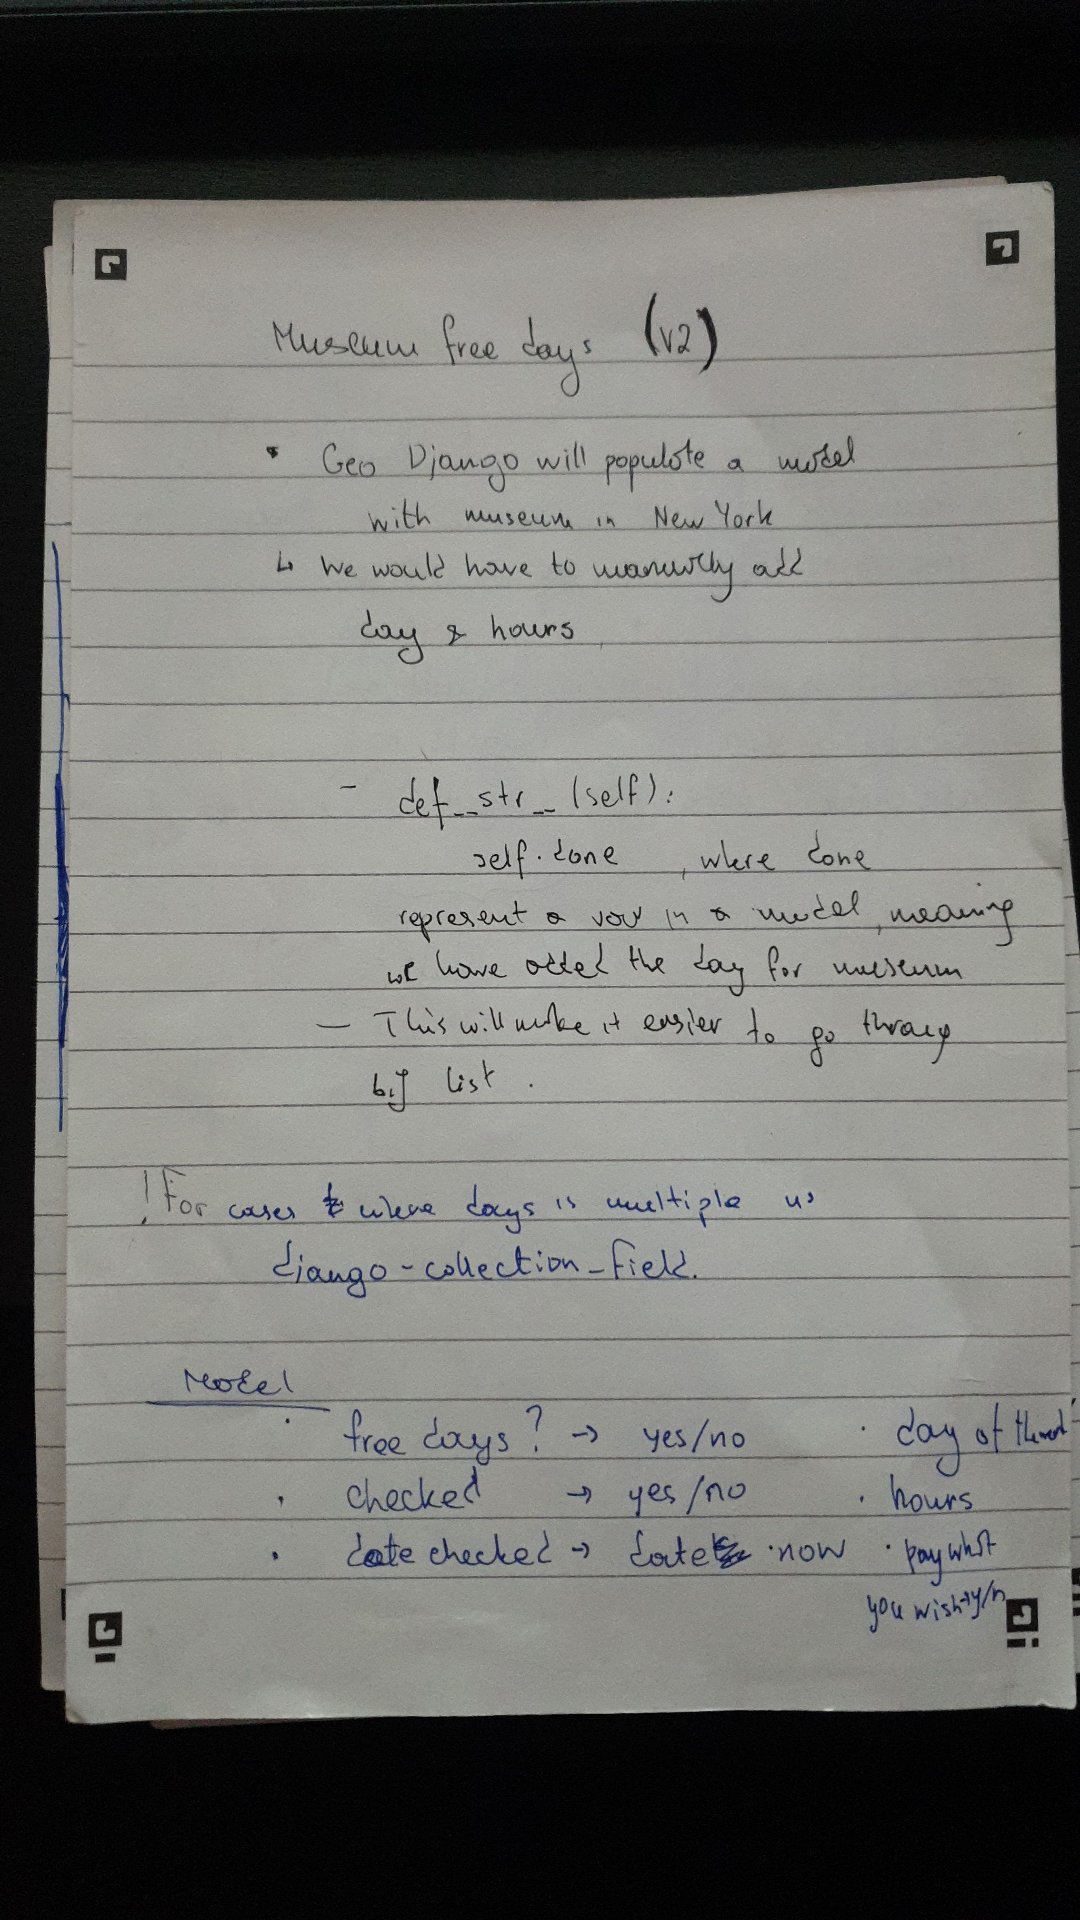 Museum free days (v2)
Geo Django will populate a model
with museum in New York
↳ We would have to manually add
day & hours
- def__str__(self):
self.done , where done
represent a row in a model, meaning
we have added the day for museum
- This will make it easier to go throug
big list.
! For cases where days is multiple us
django-collection-field.
Model
· free days? → yes/no · day of the
· checked → yes/no · hours
· date checked → date · now · pay what
you wish → y/n